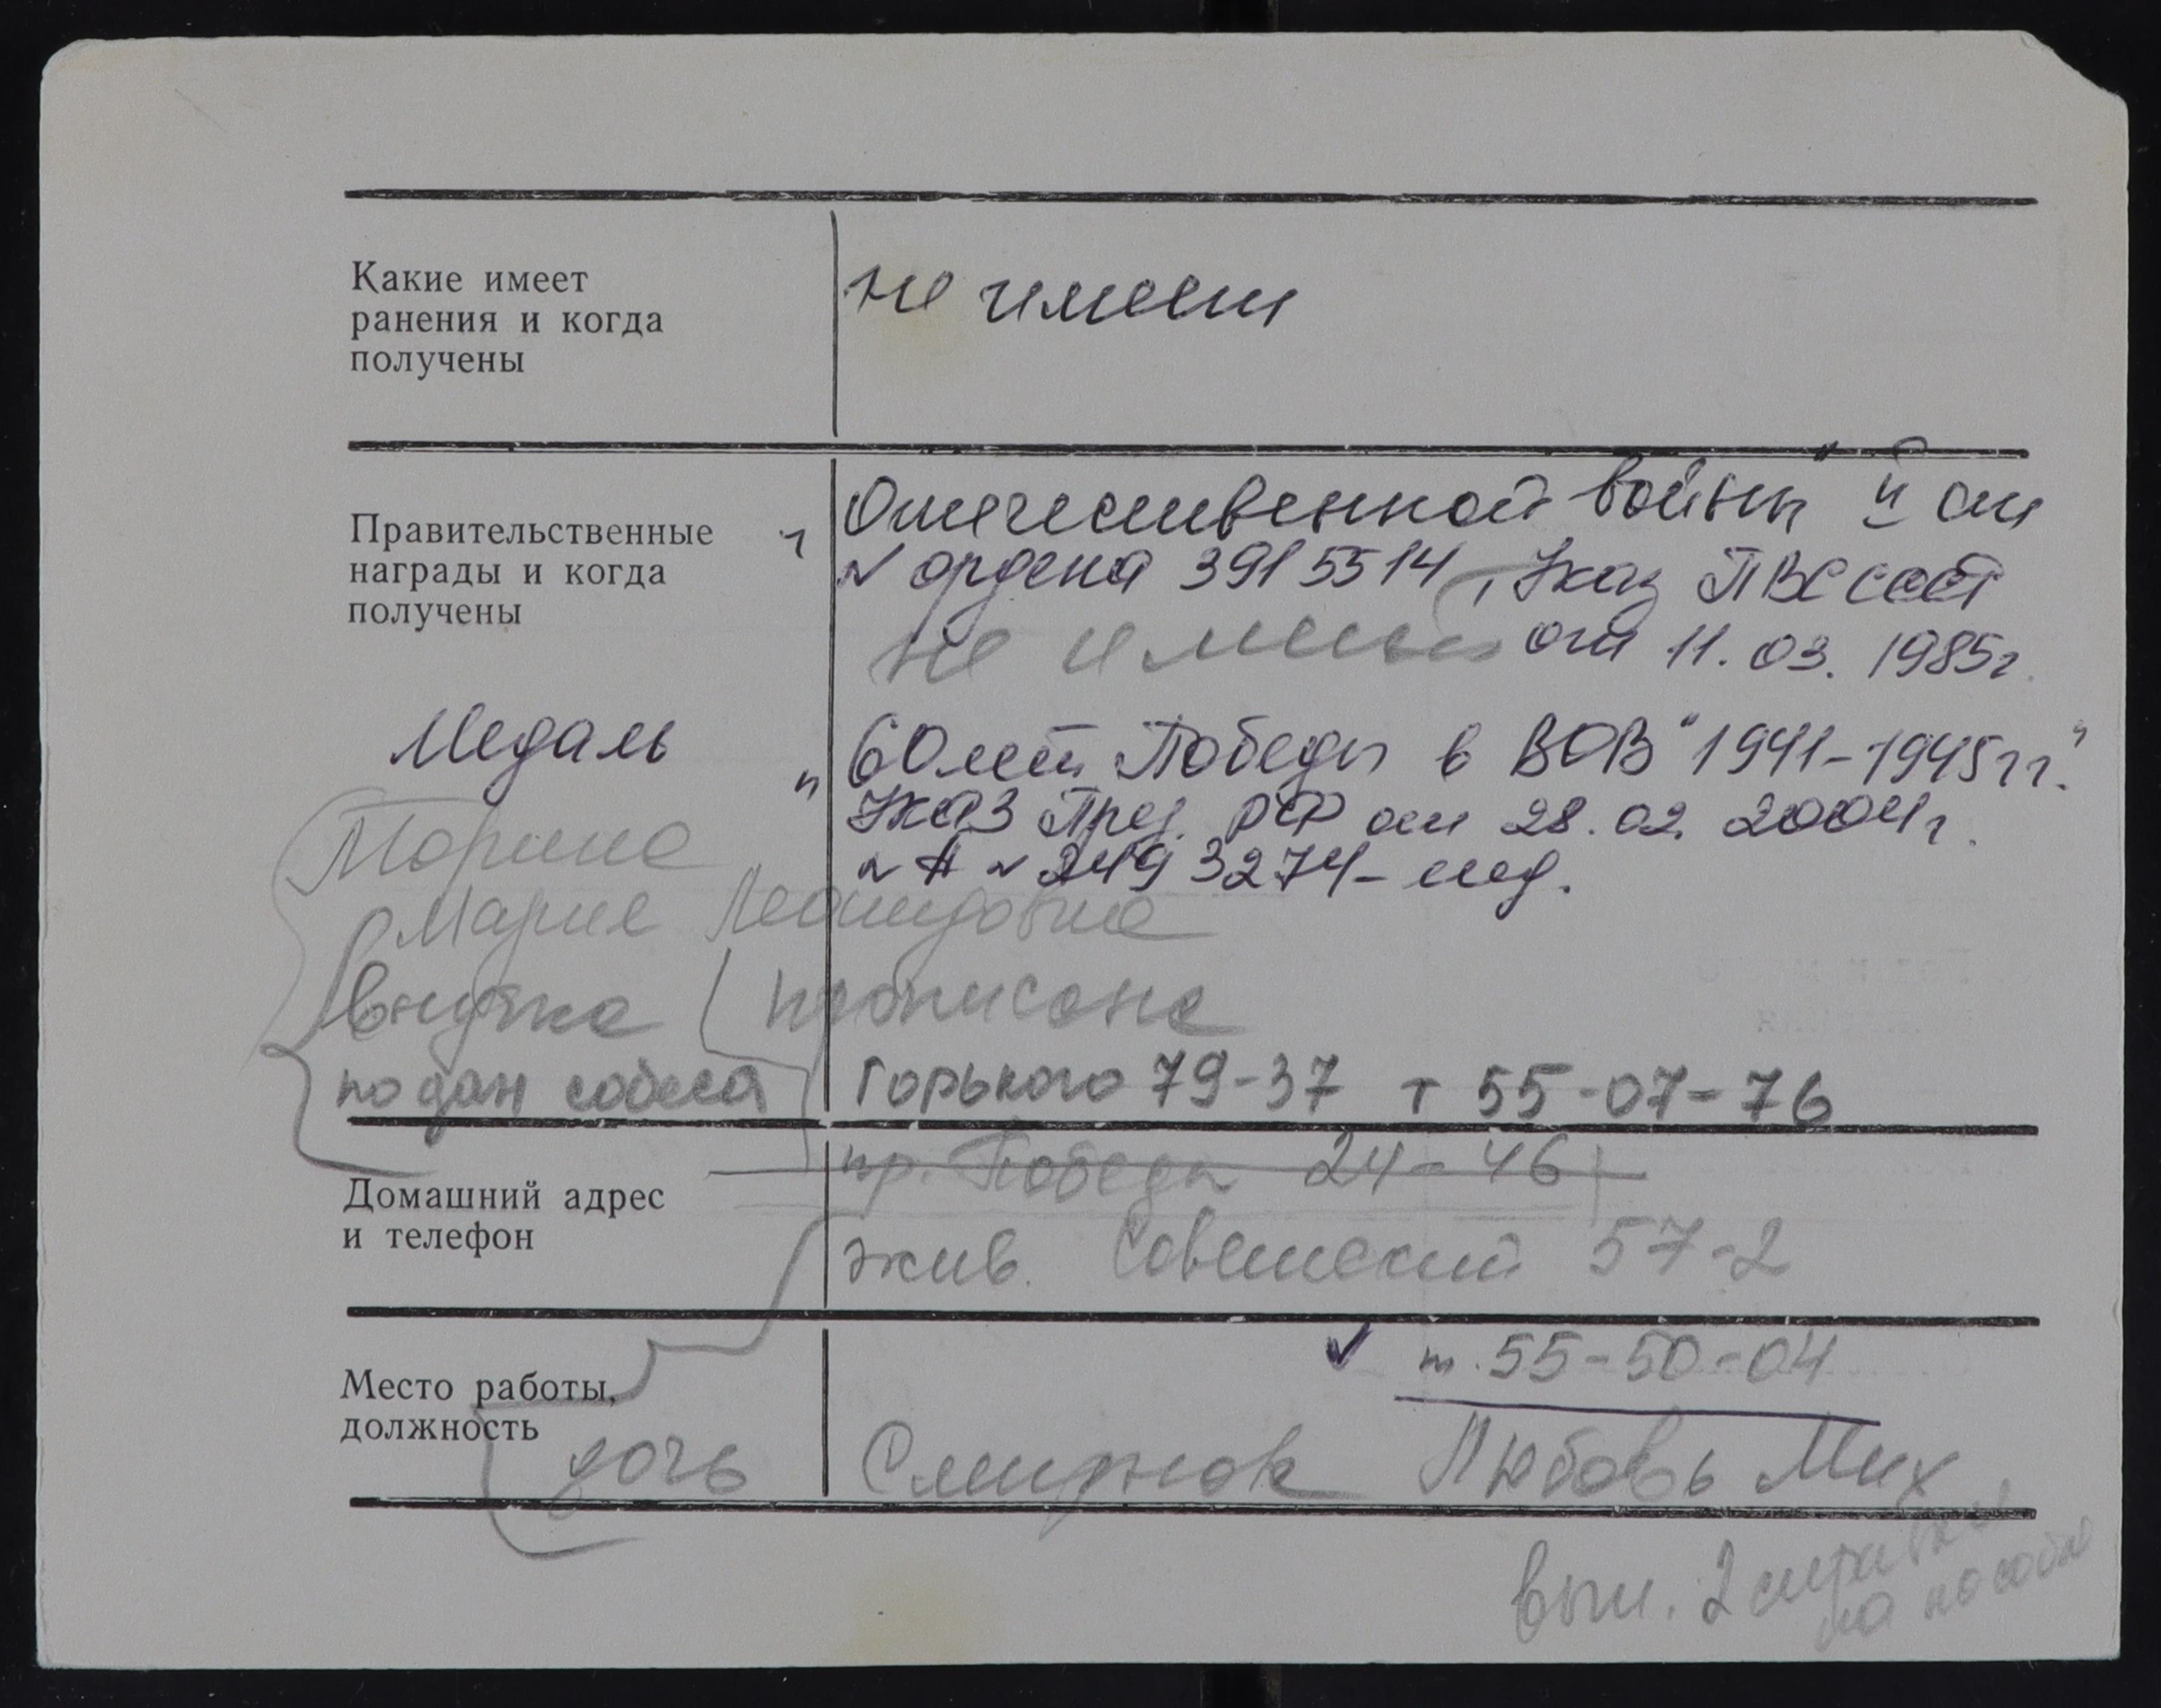 Какие имеет
ранения и когда
получены
не имеет
Правительственные
награды и когда
получены
"Отечественной войны" II ст
№ ордена 3915514, Указ ПВС СССР
не имеет от 11.03.1985г.
Медаль "60 лет Победы в ВОВ "1941-1945гг."
Указ През. РФ от 28.02.2004г.
№ А № 2493274 - мед.
Марие Леонидовна
внучка прописана
по дан собеса Горького 79-37 т 55-07-76
Домашний адрес
и телефон
пр. Победы 24-46
жив. Советский 57-2
Место работы,
должность
т. 55-50-04
дочь Смирнова Любовь Мих
вып. 2 справки
на